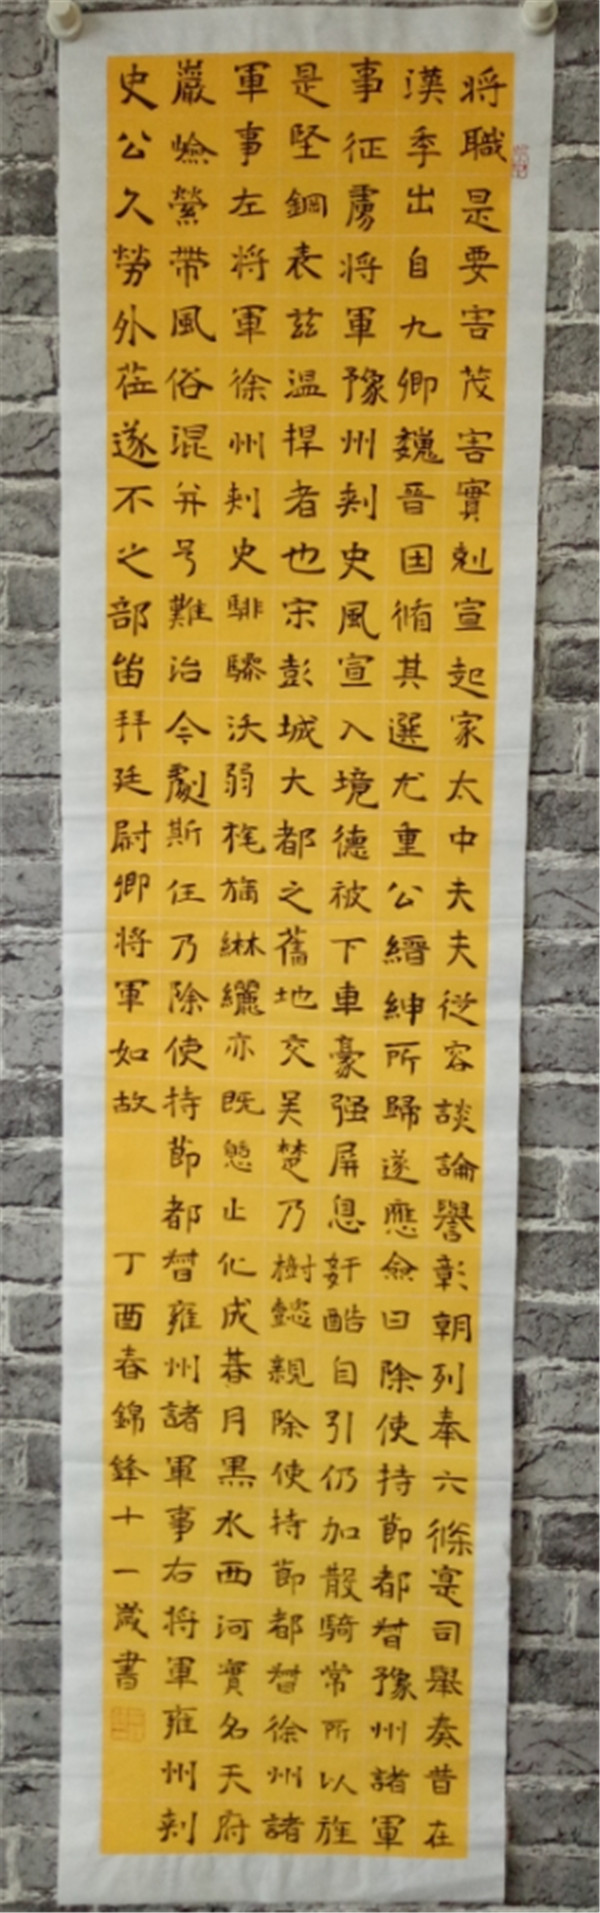 将職是要害茂害實剋宣起家太中夫夫從容談論譽彰朝列奉六條寔司舉奏昔在
漢季出自九卿魏晉因脩其選尤重公縉紳所歸遂應僉曰除使持節都督豫州諸軍
事征虜將軍豫州刺史風宣入境德被下車豪强屏息奸酷自引仍加散騎常所以旌
是堅鋼表兹温捍者也宋彭城大都之舊地交吴楚乃樹懿親除使持節都督徐州諸
軍事左將軍徐州刺史騑驂沃弱旄旃綝纚亦既憇止化成暮月黑水西河實名天府
巖嶮縈帶風俗混并号難治今劇斯任乃除使持節都督雍州諸軍事右將軍雍州刺
史公久勞外莅遂不之部留拜廷尉卿將軍如故
丁酉春錦鋒十一歲書